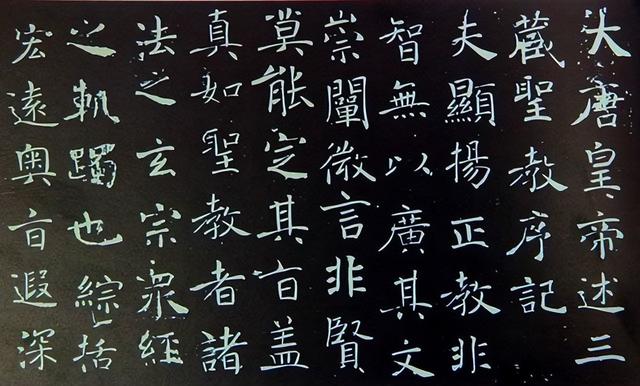 大唐皇帝述三
藏聖教序記
夫顯揚正教非
智無以廣其文
崇闡微言非賢
莫能定其旨盖
真如聖教者諸
法之玄宗眾經
之軌躅也綜括
宏遠奥旨遐深